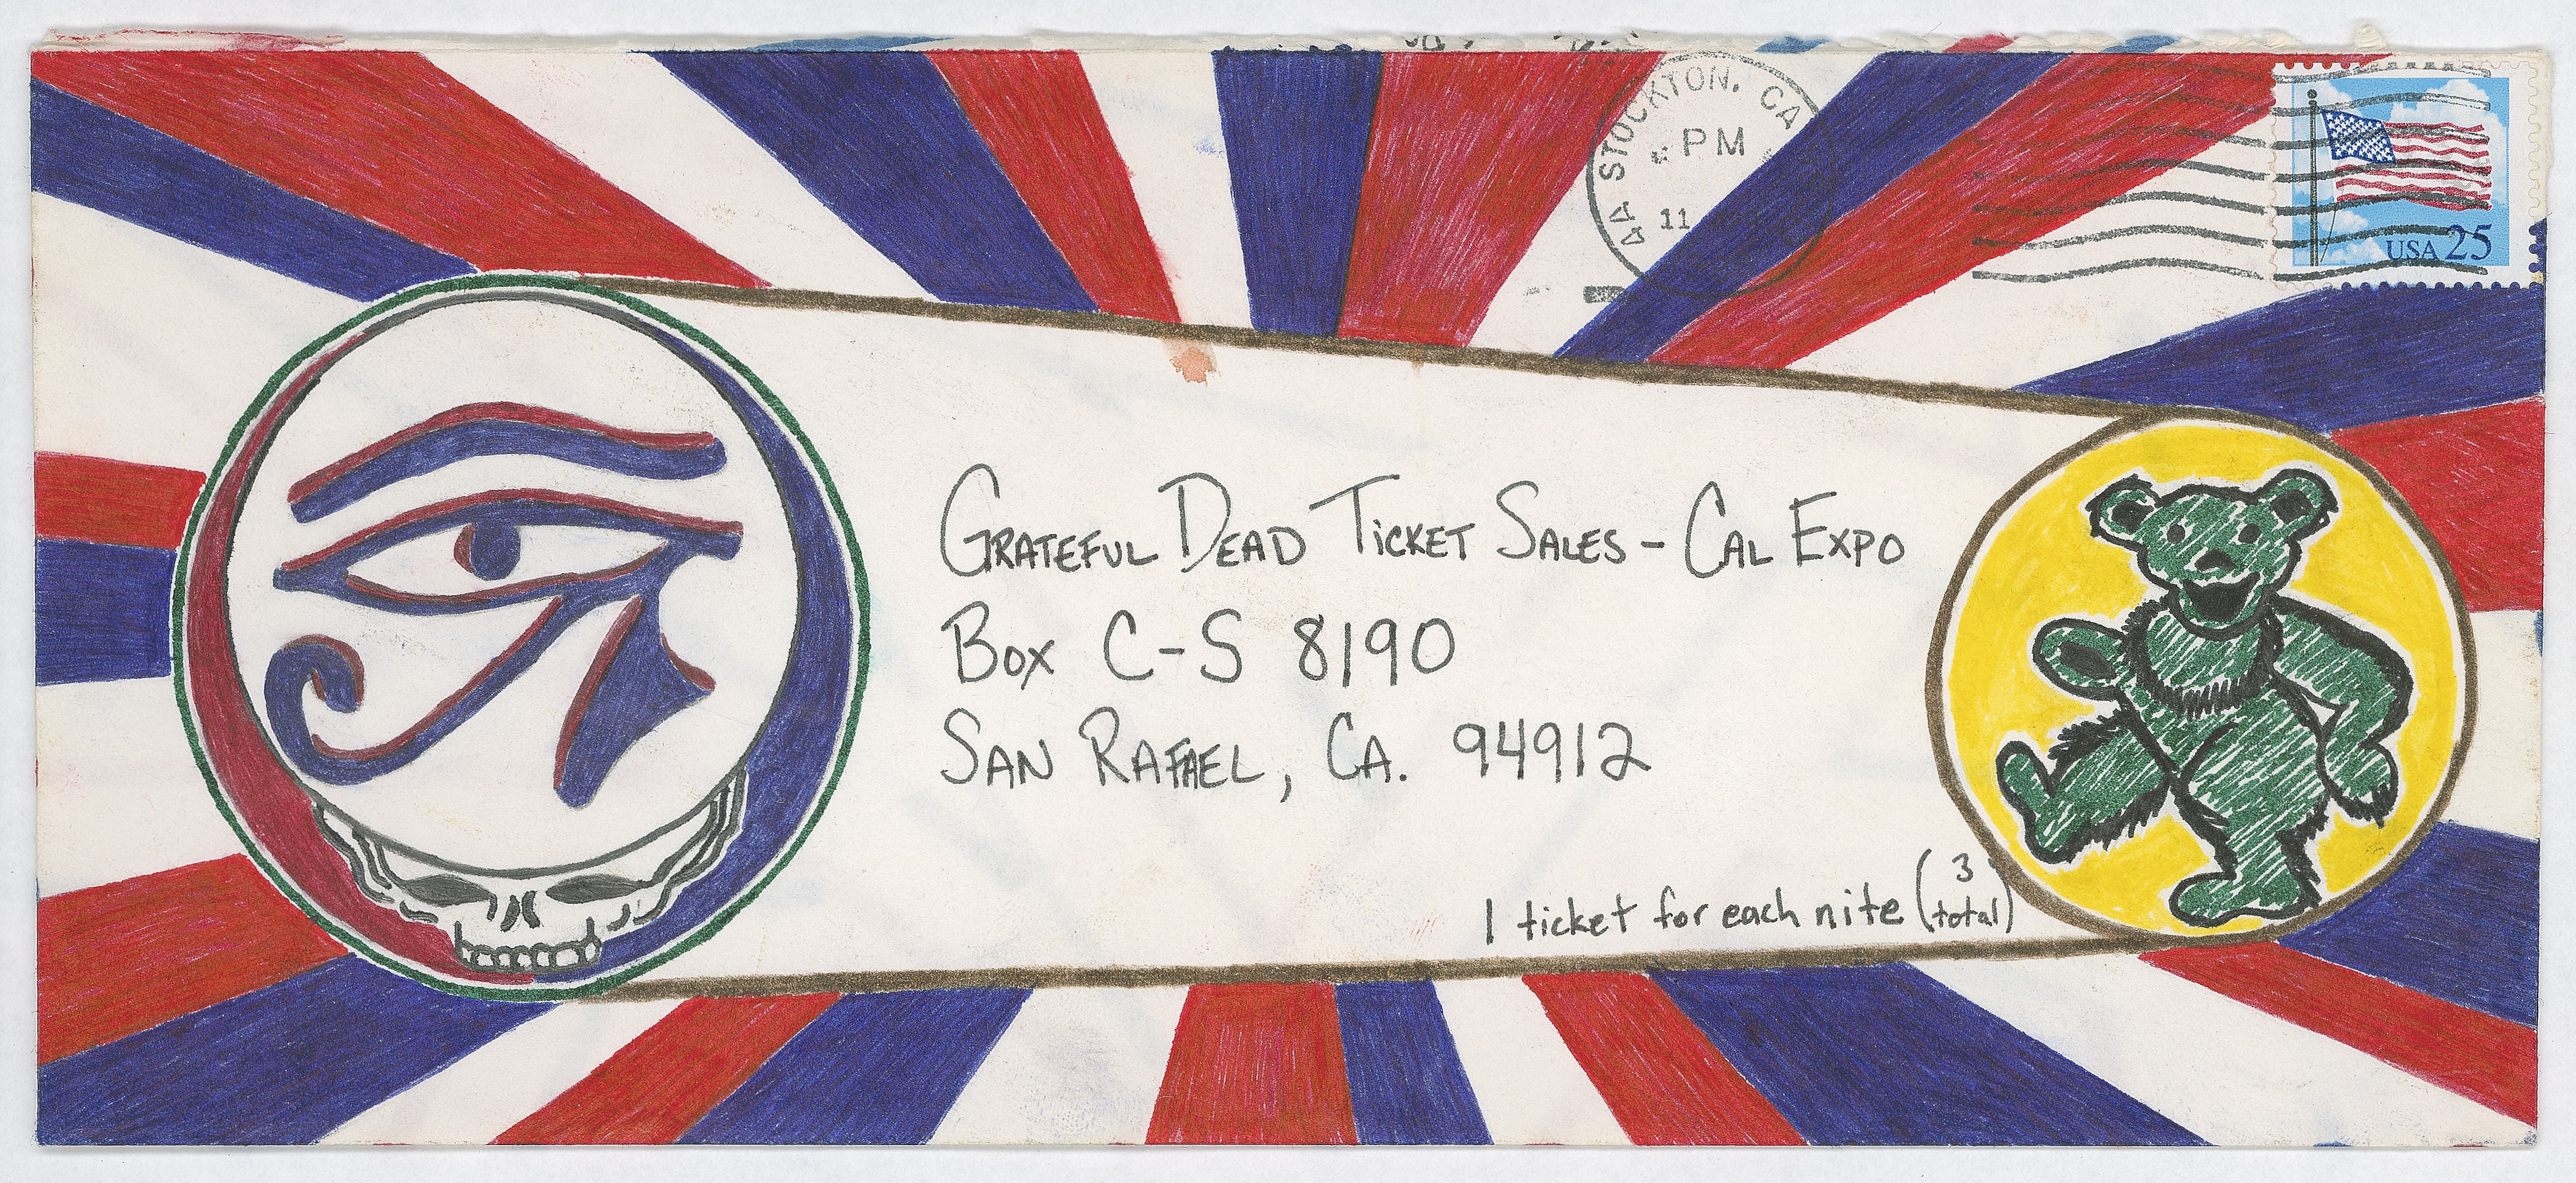 AA STOCKTON, CA
PM
11
USA 25
GRATEFUL DEAD TICKET SALES - CAL EXPO
BOX C-S 8190
SAN RAFAEL, CA. 94912
1 ticket for each nite (3 total)